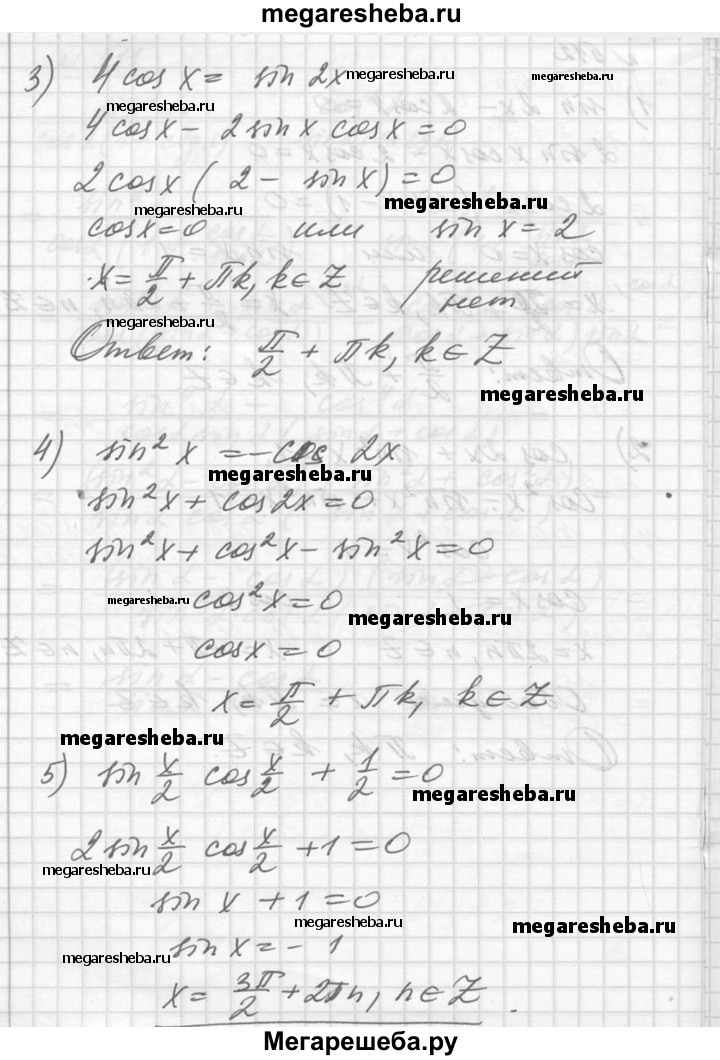 megaresheba.ru
3) 4 cos x = sin 2x megaresheba.ru
megaresheba.ru
4 cos x - 2 sin x cos x = 0
2 cos x ( 2 - sin x) = 0
megaresheba.ru megaresheba.ru
cos x = 0 или sin x = 2
x = π/2 + πk, k ∈ Z решений
нет
megaresheba.ru
Ответ: π/2 + πk, k ∈ Z
megaresheba.ru
4) sin² x = - cos 2x
megaresheba.ru
sin² x + cos 2x = 0
sin² x + cos² x - sin² x = 0
megaresheba.ru cos² x = 0
megaresheba.ru
cos x = 0
x = π/2 + πk, k ∈ Z
megaresheba.ru
5) sin x/2 cos x/2 + 1/2 = 0
megaresheba.ru
2 sin x/2 cos x/2 + 1 = 0
megaresheba.ru
sin x + 1 = 0
megaresheba.ru megaresheba.ru
sin x = - 1
megaresheba.ru
x = 3π/2 + 2πn, n ∈ Z.
Мегарешеба.ру